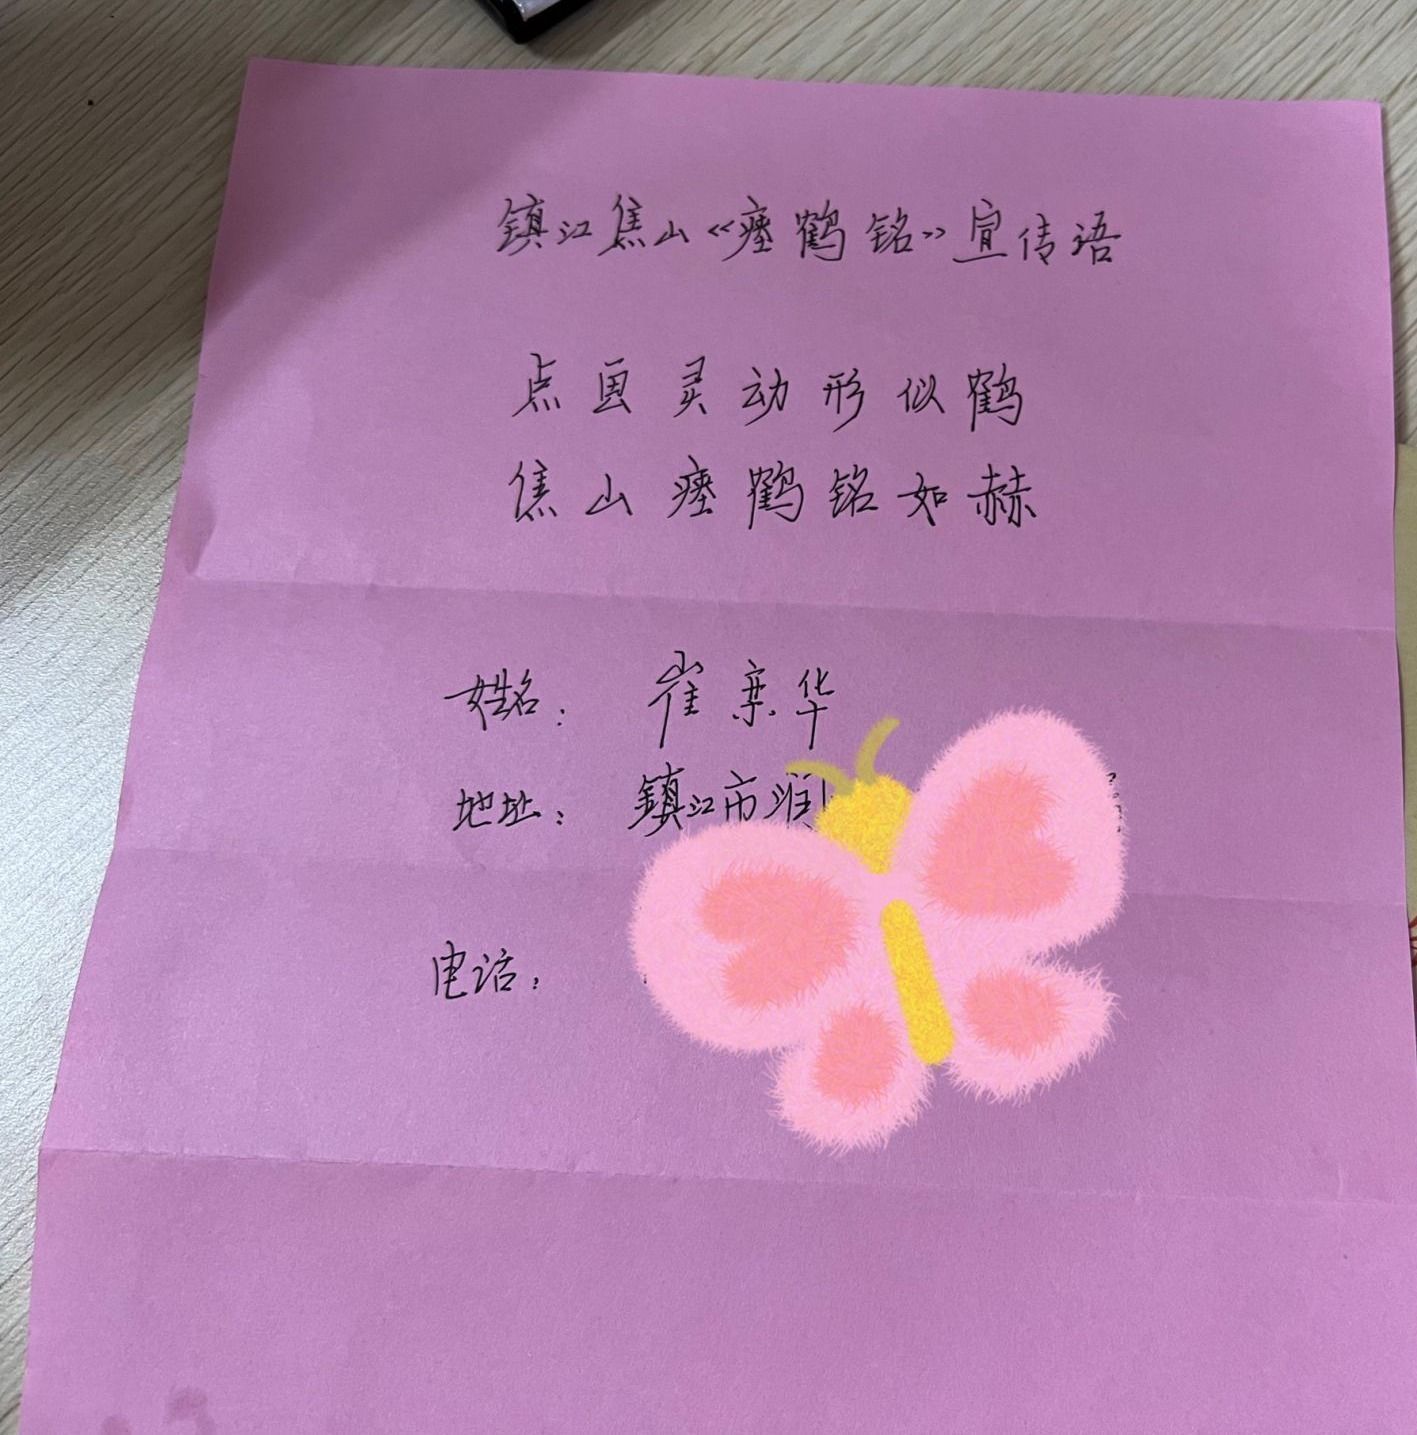 镇江焦山《瘗鹤铭》宣传语
点画灵动形似鹤
焦山瘗鹤铭如赫
姓名：崔 华
地址：镇江市润
电话：